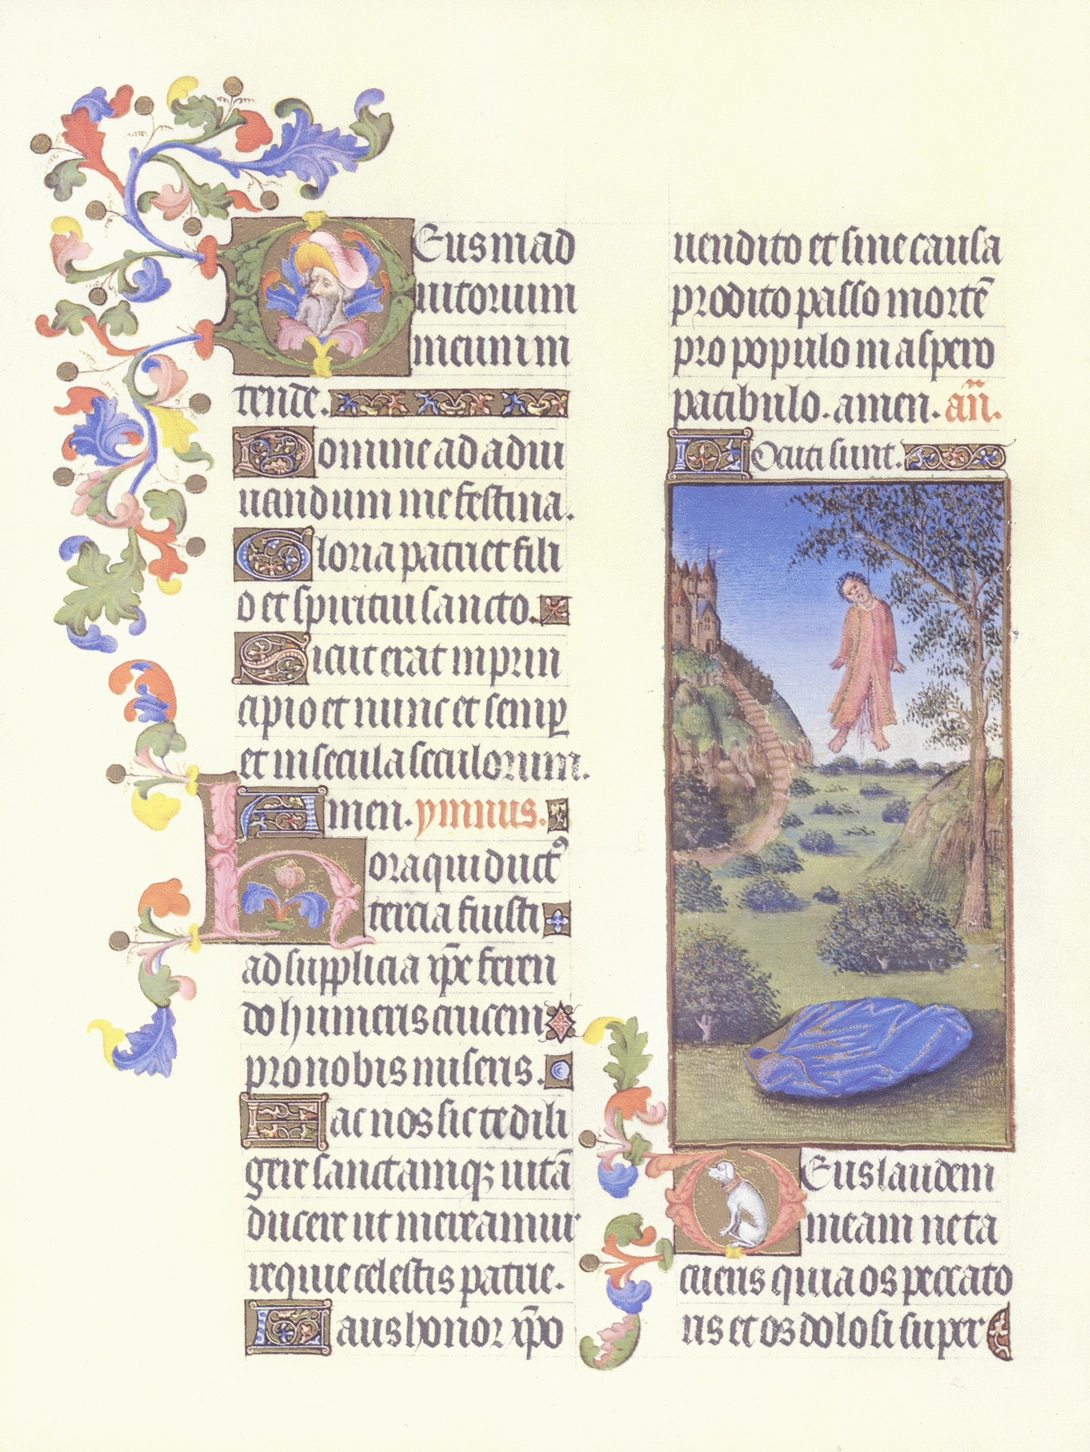 Eus in ad
iutorium
meum in
tende.
Domine ad adiu
uandum me festina.
Gloria patri et fili
o et spiritui sancto.
Sicut erat in prin
cipio et nunc et semp
et in secula seculorum.
Amen. ymnus.
hora qui duct9
tercia fuisti
ad supplicia xp̄e feren
do humeris crucem
pro nobis miseris.
Fac nos sic te dili
gere sanctamqz uitā
ducere ut mereamur
requie celestis patrie.
Laus honor xp̄o
uendito et sine causa
prodito passo mortē
pro populo in aspero
patibulo. amen. an̄.
Locuti sunt.
Deus laudem
meam ne ta
cueris quia os peccato
ris et os dolosi super